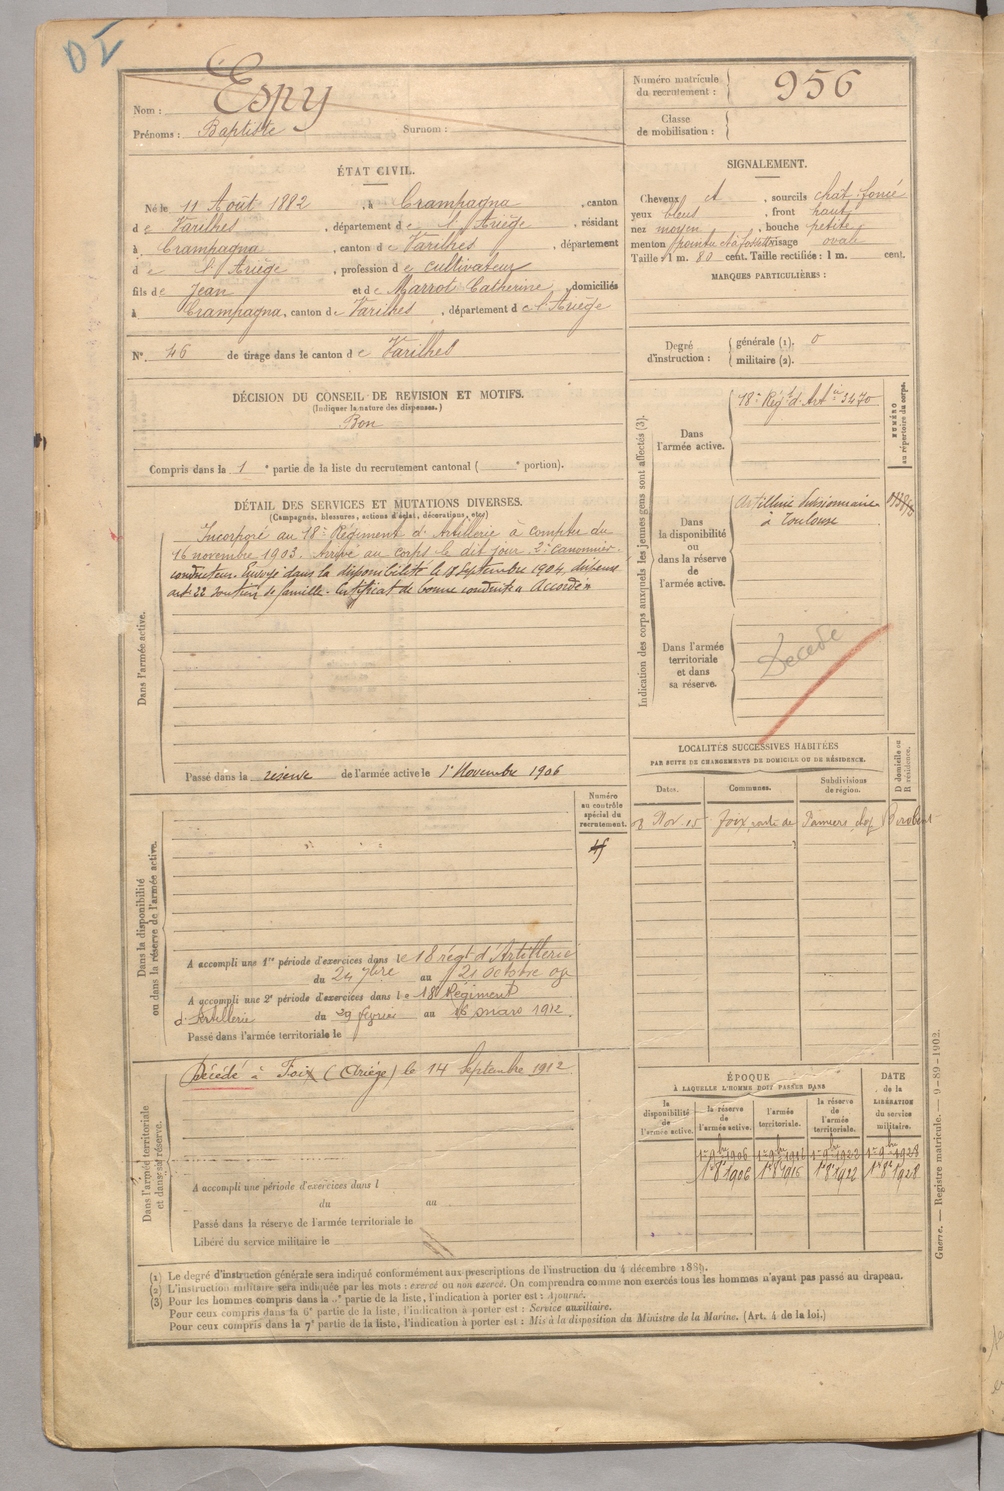 DI
Nom : Espy
Prénoms : Baptiste Surnom :
Numéro matricule du recrutement : 956
Classe de mobilisation :
ÉTAT CIVIL.
Né le 11 Août 1882, à Crampagna, canton
de Varilhes, département de l'Ariège, résidant
à Crampagna, canton de Varilhes, département
de l'Ariège, profession de cultivateur
fils de Jean et de Marrot Catherine, domiciliés
à Crampagna, canton de Varilhes, département de l'Ariège
N° 46 de tirage dans le canton de Varilhes
SIGNALEMENT.
Cheveux et, sourcils chat. foncé
yeux bleus, front haut
nez moyen, bouche petite
menton pointu et à fossette visage ovale
Taille : 1 m. 80 cent. Taille rectifiée : 1 m. cent.
MARQUES PARTICULIÈRES :
Degré d'instruction : générale (1). 0
militaire (2).
DÉCISION DU CONSEIL DE REVISION ET MOTIFS.
(Indiquer la nature des dispenses.)
Bon
Compris dans la 1e partie de la liste du recrutement cantonal ( e portion).
DÉTAIL DES SERVICES ET MUTATIONS DIVERSES.
(Campagnes, blessures, actions d'éclat, décorations, etc.)
Dans l'armée active.
Incorporé au 18e Régiment d'Artillerie à compter du
16 novembre 1903. Arrivé au corps le dit jour. 2e canonnier
conducteur. Envoyé dans la disponibilité le Septembre 1904,
art. 22 soutien de famille. Certificat de bonne conduite "Accordé"
Passé dans la réserve de l'armée active le 1er Novembre 1906
Indication des corps auxquels les jeunes gens sont affectés (3).
NUMÉRO au répertoire du corps.
Dans l'armée active.
18e Régt d'Artie 3470
Dans la disponibilité ou dans la réserve de l'armée active.
Artillerie divisionnaire
à Toulouse
Dans l'armée territoriale et dans sa réserve.
Décédé
LOCALITÉS SUCCESSIVES HABITÉES
PAR SUITE DE CHANGEMENTS DE DOMICILE OU DE RÉSIDENCE.
Dates. Communes. Subdivisions de région. D domicile ou R résidence.
Nov. Foix, Pamiers
Numéro au contrôle spécial du recrutement.
Dans la disponibilité ou dans la réserve de l'armée active.
A accompli une 1re période d'exercices dans le 18 régt d'Artillerie
du 24 7bre au 21 Octobre 09
A accompli une 2e période d'exercices dans le 18e Régiment
d'Artillerie du 29 février au 16 mars 1912.
Passé dans l'armée territoriale le
Dans l'armée territoriale et dans sa réserve.
Décédé à Foix (Ariège) le 14 Septembre 1912
A accompli une période d'exercices dans l
du au
Passé dans la réserve de l'armée territoriale le
Libéré du service militaire le
ÉPOQUE
À LAQUELLE L'HOMME DOIT PASSER DANS
DATE de la LIBÉRATION du service militaire.
la disponibilité de l'armée active. la réserve de l'armée active. l'armée territoriale. la réserve de l'armée territoriale.
1er 9bre 1906 1er 9bre 1916 1er 9bre 1922 1er 9bre 1928
1er 8e 1906 1er 8e 1916 1er 8e 1922 1er 8e 1928
(1) Le degré d'instruction générale sera indiqué conformément aux prescriptions de l'instruction du 4 décembre 1889.
(2) L'instruction militaire sera indiquée par les mots : exercé ou non exercé. On comprendra comme non exercés tous les hommes n'ayant pas passé au drapeau.
(3) Pour les hommes compris dans la partie de la liste, l'indication à porter est : Ajourné.
Pour ceux compris dans la 6e partie de la liste, l'indication à porter est : Service auxiliaire.
Pour ceux compris dans la 7e partie de la liste, l'indication à porter est : Mis à la disposition du Ministre de la Marine. (Art. 4 de la loi.)
Guerre. — Registre matricule. — 9-89-1902.